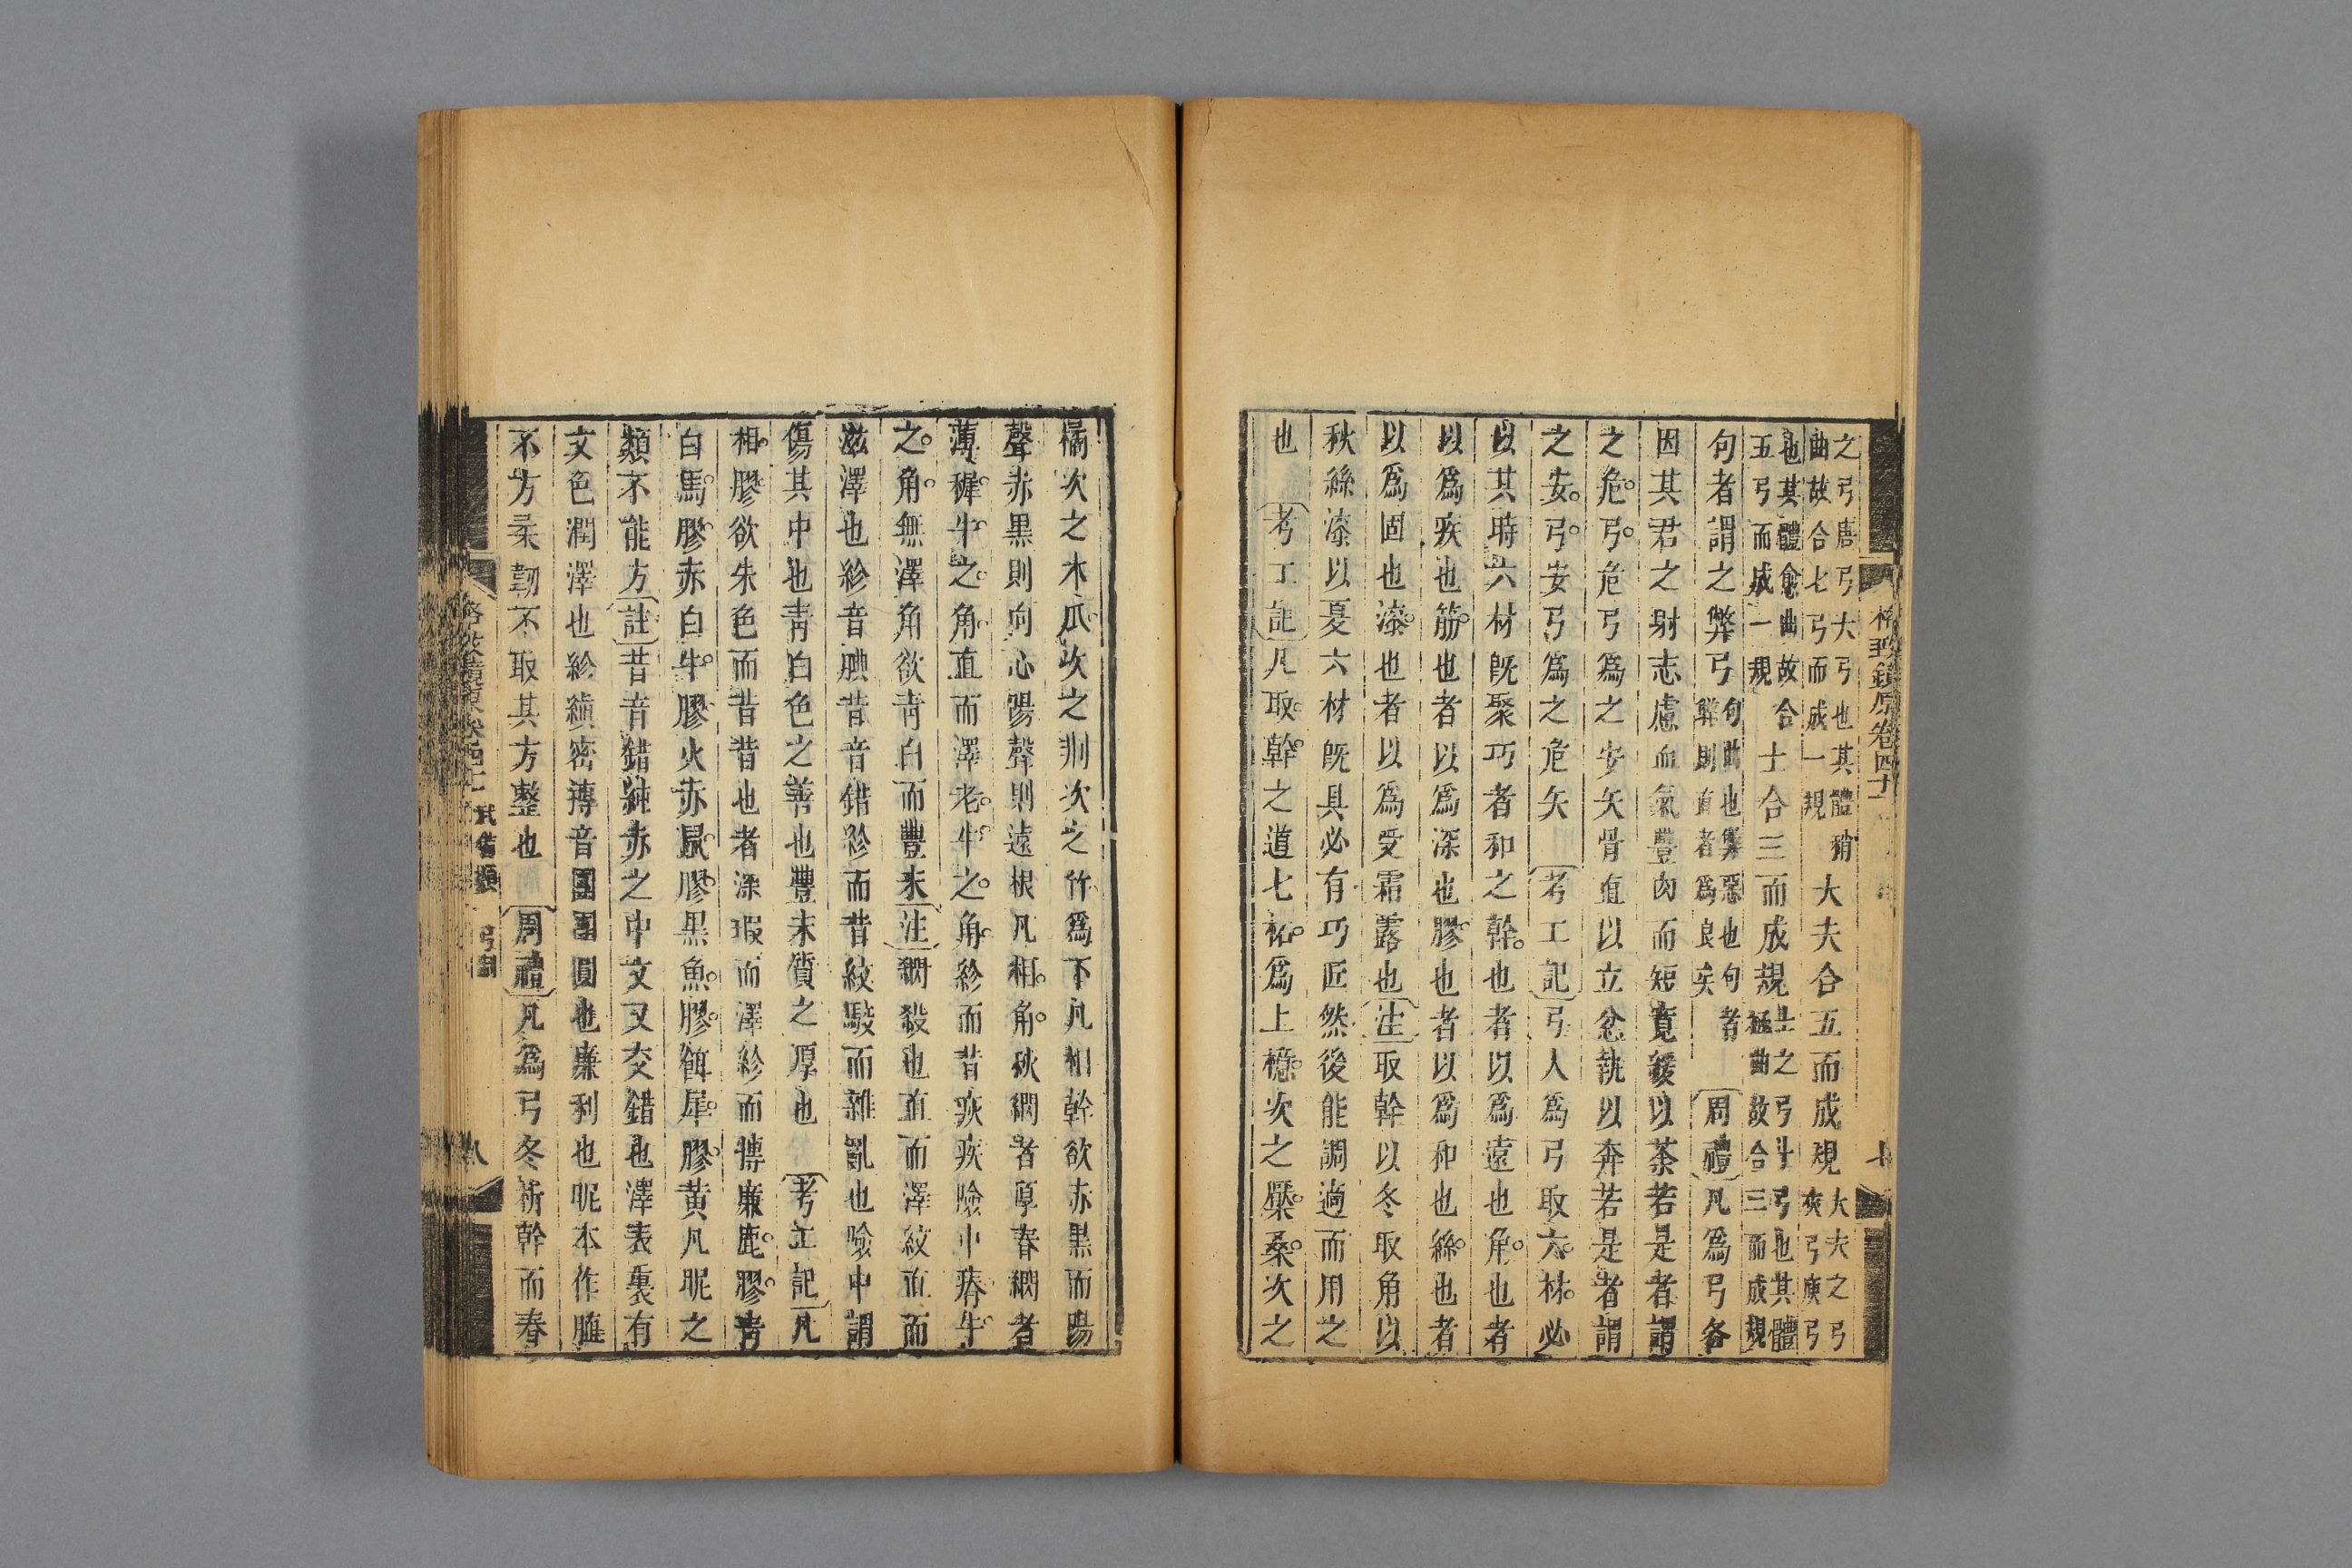 格致鏡原卷四十
七
之弓唐弓大弓也其體稍
曲故合七弓而成一規
大夫合五而成規
大夫之弓
夾弓庾弓
也其體愈曲故合
五弓而成一規
士合三而成規
士之弓弊弓也其體
極曲故合三而成規
句者謂之弊弓
句曲也弊惡也句者
弊則直者爲良矣
周禮凡爲弓各
因其君之躬志慮血氣豐肉而短寬緩以荼若是者謂
之危弓危弓爲之安矢骨直以立忿埶以奔若是者謂
之安弓安弓爲之危矢 考工記弓人爲弓取六材必
以其時六材旣聚巧者和之幹也者以爲遠也角也者
以爲疾也筋也者以爲深也膠也者以爲和也絲也者
以爲固也漆也者以爲受霜露也注取幹以冬取角以
秋絲漆以夏六材旣具必有巧匠然後能調適而用之
也 考工記凡取幹之道七柘爲上檍次之檿桑次之
橘次之木瓜次之荆次之竹爲下凡相幹欲赤黒而陽
聲赤黒則向心陽聲則遠根凡相角秋閷者厚春閷者
薄穉牛之角直而澤老牛之角紾而昔疢疾險中瘠牛
之角無澤角欲青白而豐末注閷殺也直而澤紋直而
滋澤也紾音腆昔音錯紾而昔紋駮而雜亂也險中謂
傷其中也青白色之善也豐末質之厚也 考工記凡
相膠欲朱色而昔昔也者深瑕而澤紾而摶廉鹿膠青
白馬膠赤白牛膠火赤鼠膠黒魚膠餌犀膠黄凡昵之
類不能方註昔音錯純赤之中文又交錯也澤表裏有
文色潤澤也紾縝密摶音團團圓也廉利也昵本作䐈
不方柔韌不取其方整也 周禮凡爲弓冬析幹而春
格致鏡原卷四十 武備類 弓 八